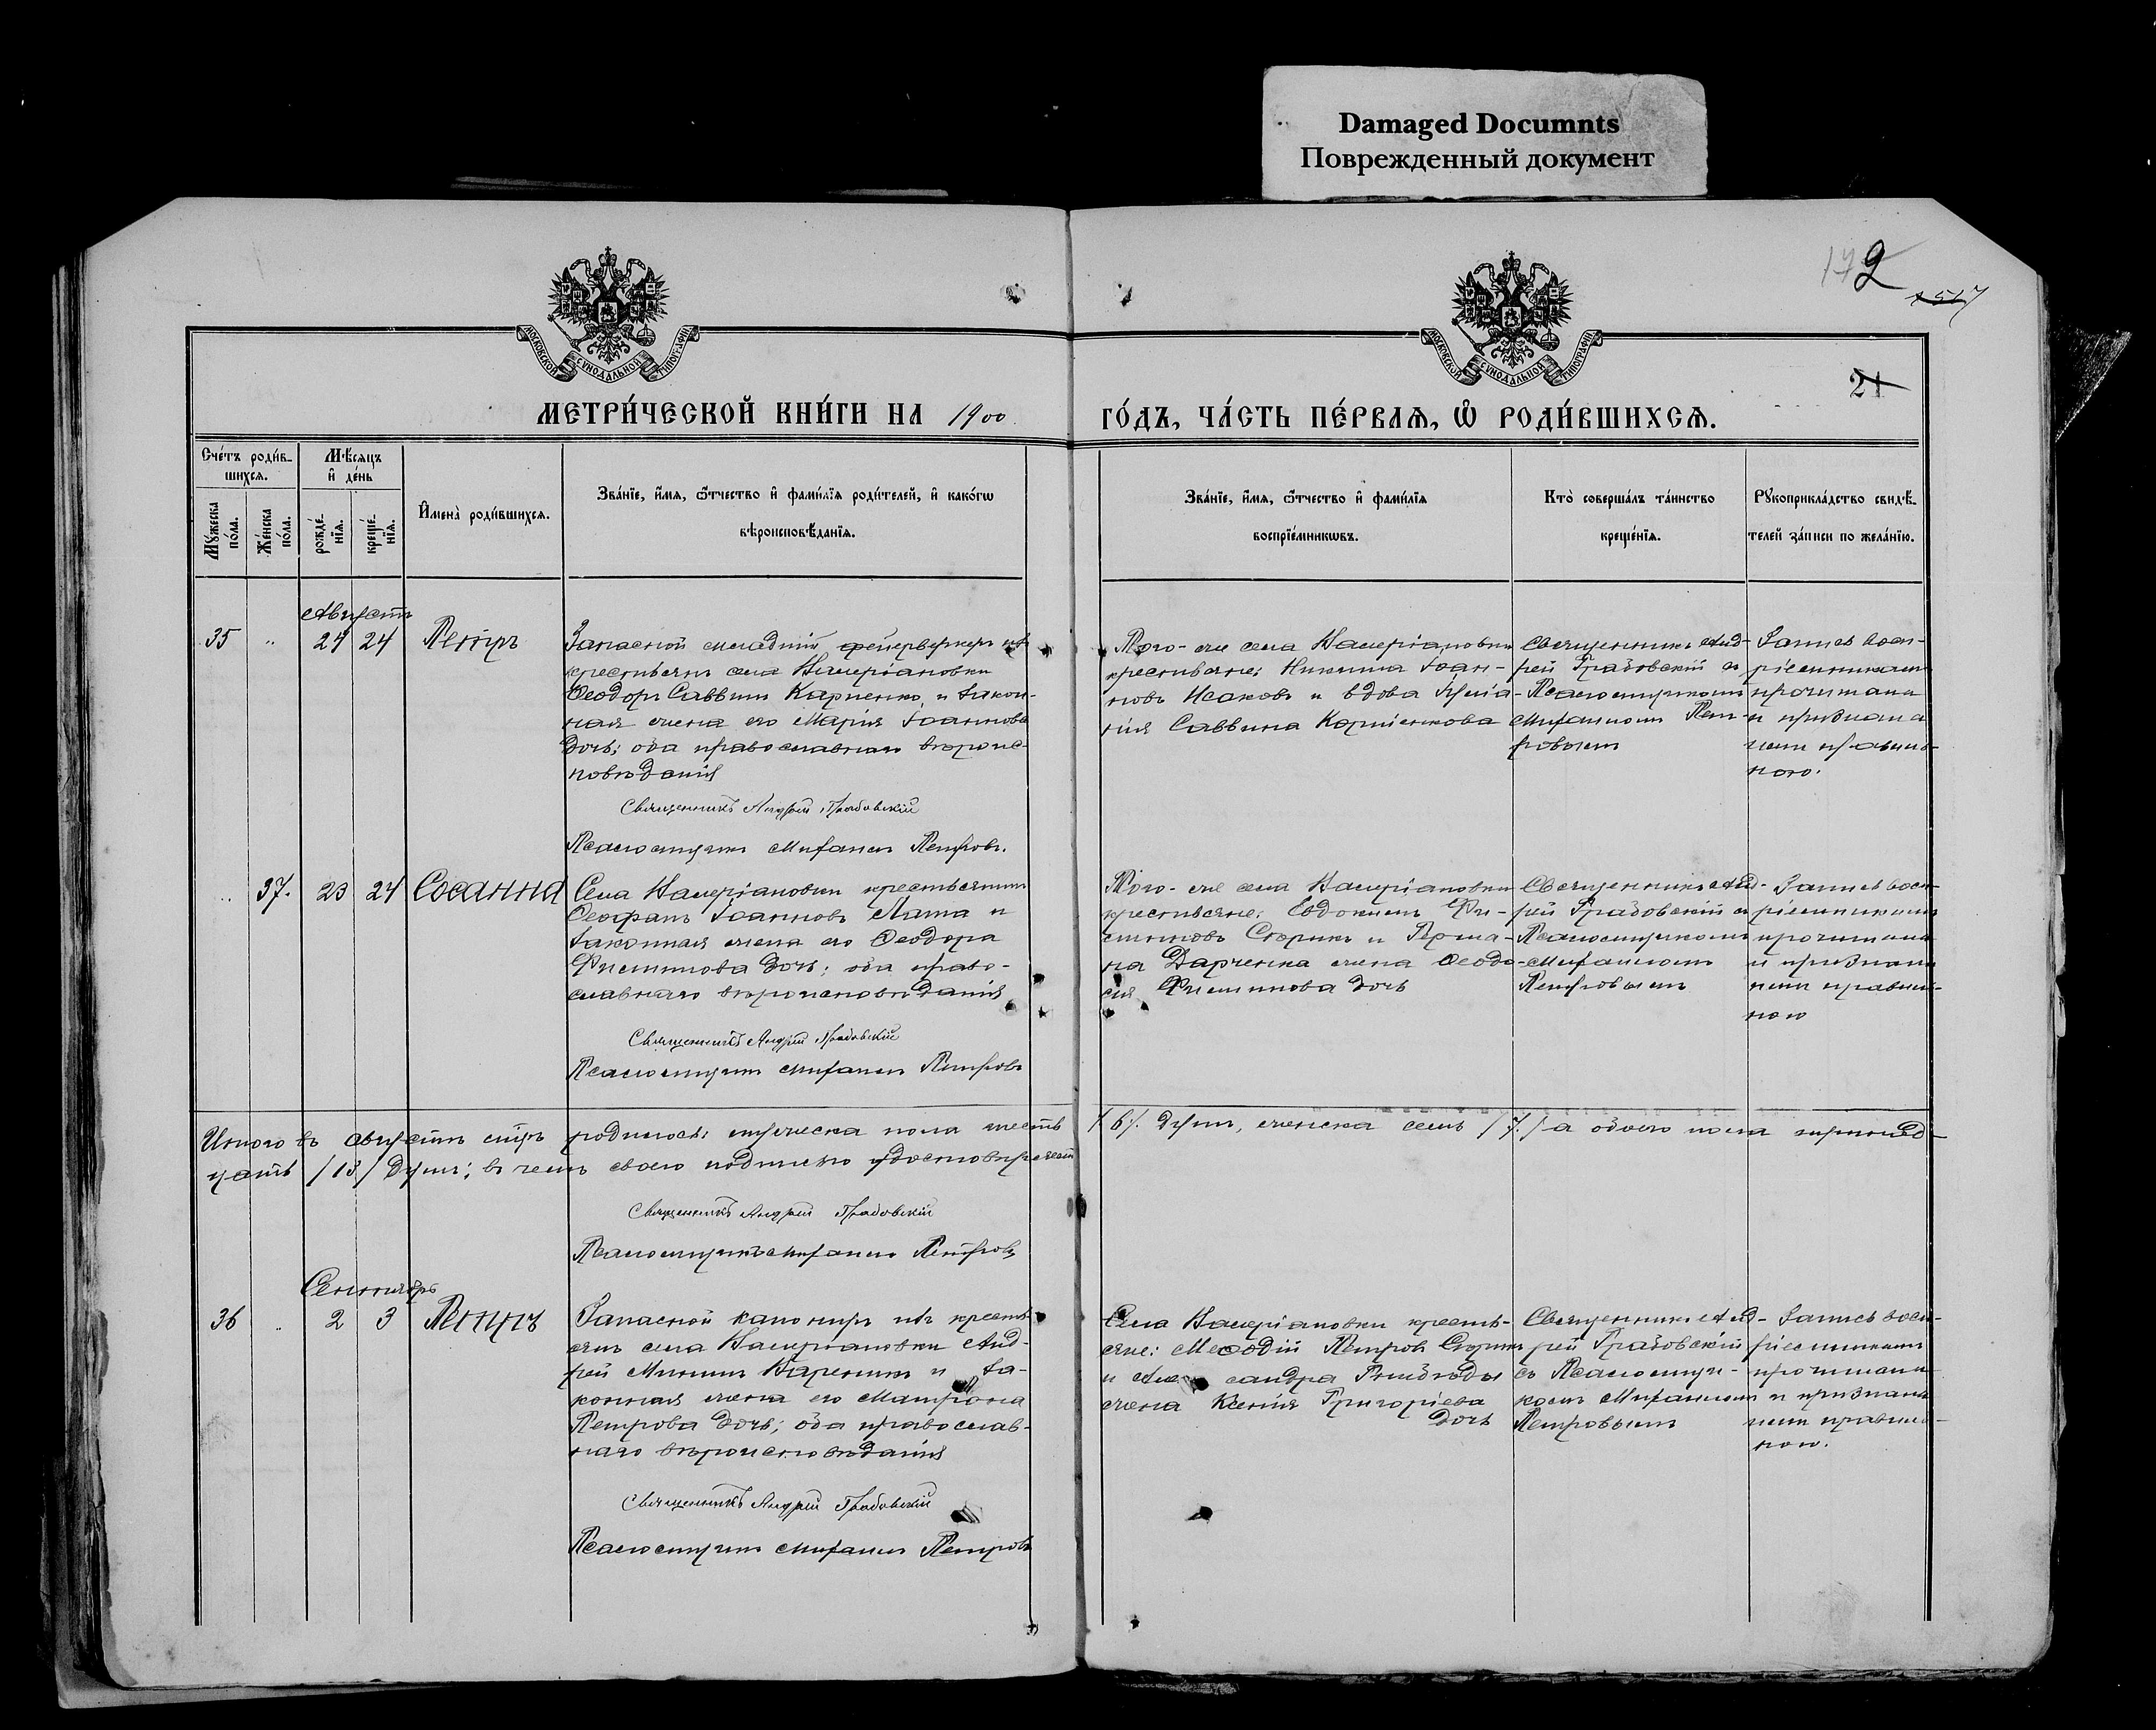 Damaged Documnts
Поврежденный документ
172
1517
21
МОСКОВСКОЙ СѴНОДАЛЬНОЙ ТИПОГРАФІИ
МОСКОВСКОЙ СѴНОДАЛЬНОЙ ТИПОГРАФІИ
МЕТРИ́ЧЕСКОЙ КНИ́ГИ НА 1900
ГО́ДЪ, ЧА́СТЬ ПЕ́РВАѦ, Ѡ РОДИ́ВШИХСѦ.
Сче́тъ роди́в-
шихсѧ.
Мѣ́сяцъ
и҆ де́нь
Мꙋ́жеска по́ла.
Же́нска по́ла.
рожде́-
нїѧ.
креще́-
нїѧ.
И҆мена̀ роди́вшихсѧ.
Зва́нїе, и҆́мѧ, ѻ҆́тчество и҆ фами́лїѧ роди́телей, и҆ како́гѡ
вѣроисповѣ́данїѧ.
Зва́нїе, и҆́мѧ, ѻ҆́тчество и҆ фами́лїѧ
воспрїе́мникѡвъ.
Кто̀ соверша́лъ та́инство
креще́нїѧ.
Рꙋкоприкла́дство свидѣ́-
телей за́писи по жела́нїю.
Августъ
35 " 24 24 Петръ
Запасной младшій фейерверкеръ изъ
крестьянъ села Валеріановки
Ѳеодоръ Саввинъ Карпенко, и закон-
ная жена его Марія Іоаннова
дочь; оба православнаго вѣроис-
повѣданія
Священникъ Андрей Грабовскій
Псаломщикъ Михаилъ Петровъ.
Того-же села Валеріановки
крестьяне: Никита Іоан-
новъ Исаковъ и вдова
Саввина Карпенкова
Священникъ Анд-
рей Грабовскій съ
Псаломщикомъ
Михаиломъ Пет-
ровымъ
Запись восп-
ріемникамъ
прочитана
и признана
ими правиль-
ною.
" 37. 23 24 Сосанна
Села Валеріановки крестьянинъ
Ѳеофанъ Іоанновъ Лата и
законная жена его Ѳеодора
Филиппова дочь; оба право-
славнаго вѣроисповѣданія
Священникъ Андрей Грабовскій
Псаломщикъ Михаилъ Петровъ
Того-же села Валеріановки
крестьяне: Евдокимъ Фи-
липповъ Сторикъ и Герма-
на Дарченка жена Ѳеодо-
сія Филиппова дочь
Священникъ Анд-
рей Грабовскій съ
Псаломщикомъ
Михаиломъ
Петровымъ
Запись восп-
ріемникамъ
прочитана
и признана
ими правиль-
ною
Итого въ августѣ мцѣ родилось: мужеска пола шесть
/6/. душъ, женска семь /7./ а обоего пола тринад-
цать /13/ душъ; въ чемъ своею подписью удостовѣряемъ
Священникъ Андрей Грабовскій
Псаломщикъ Михаилъ Петровъ
Сентябрь
36 " 2 3 Петръ
Запасной канониръ изъ кресть-
янъ села Валеріановки Анд-
рей Мининъ Вареникъ и за-
конная жена его Матрона
Петрова дочь; оба православ-
наго вѣроисповѣданія
Священникъ Андрей Грабовскій
Псаломщикъ Михаилъ Петровъ
Села Валеріановки кресть-
яне: Меѳодій Петровъ Сторикъ
и жена Ксенія Григоріева
дочь
Священникъ Анд-
рей Грабовскій
съ Псаломщи-
комъ Михаиломъ
Петровымъ
Запись восп-
ріемникамъ
прочитана
и признана
ими правиль-
ною.